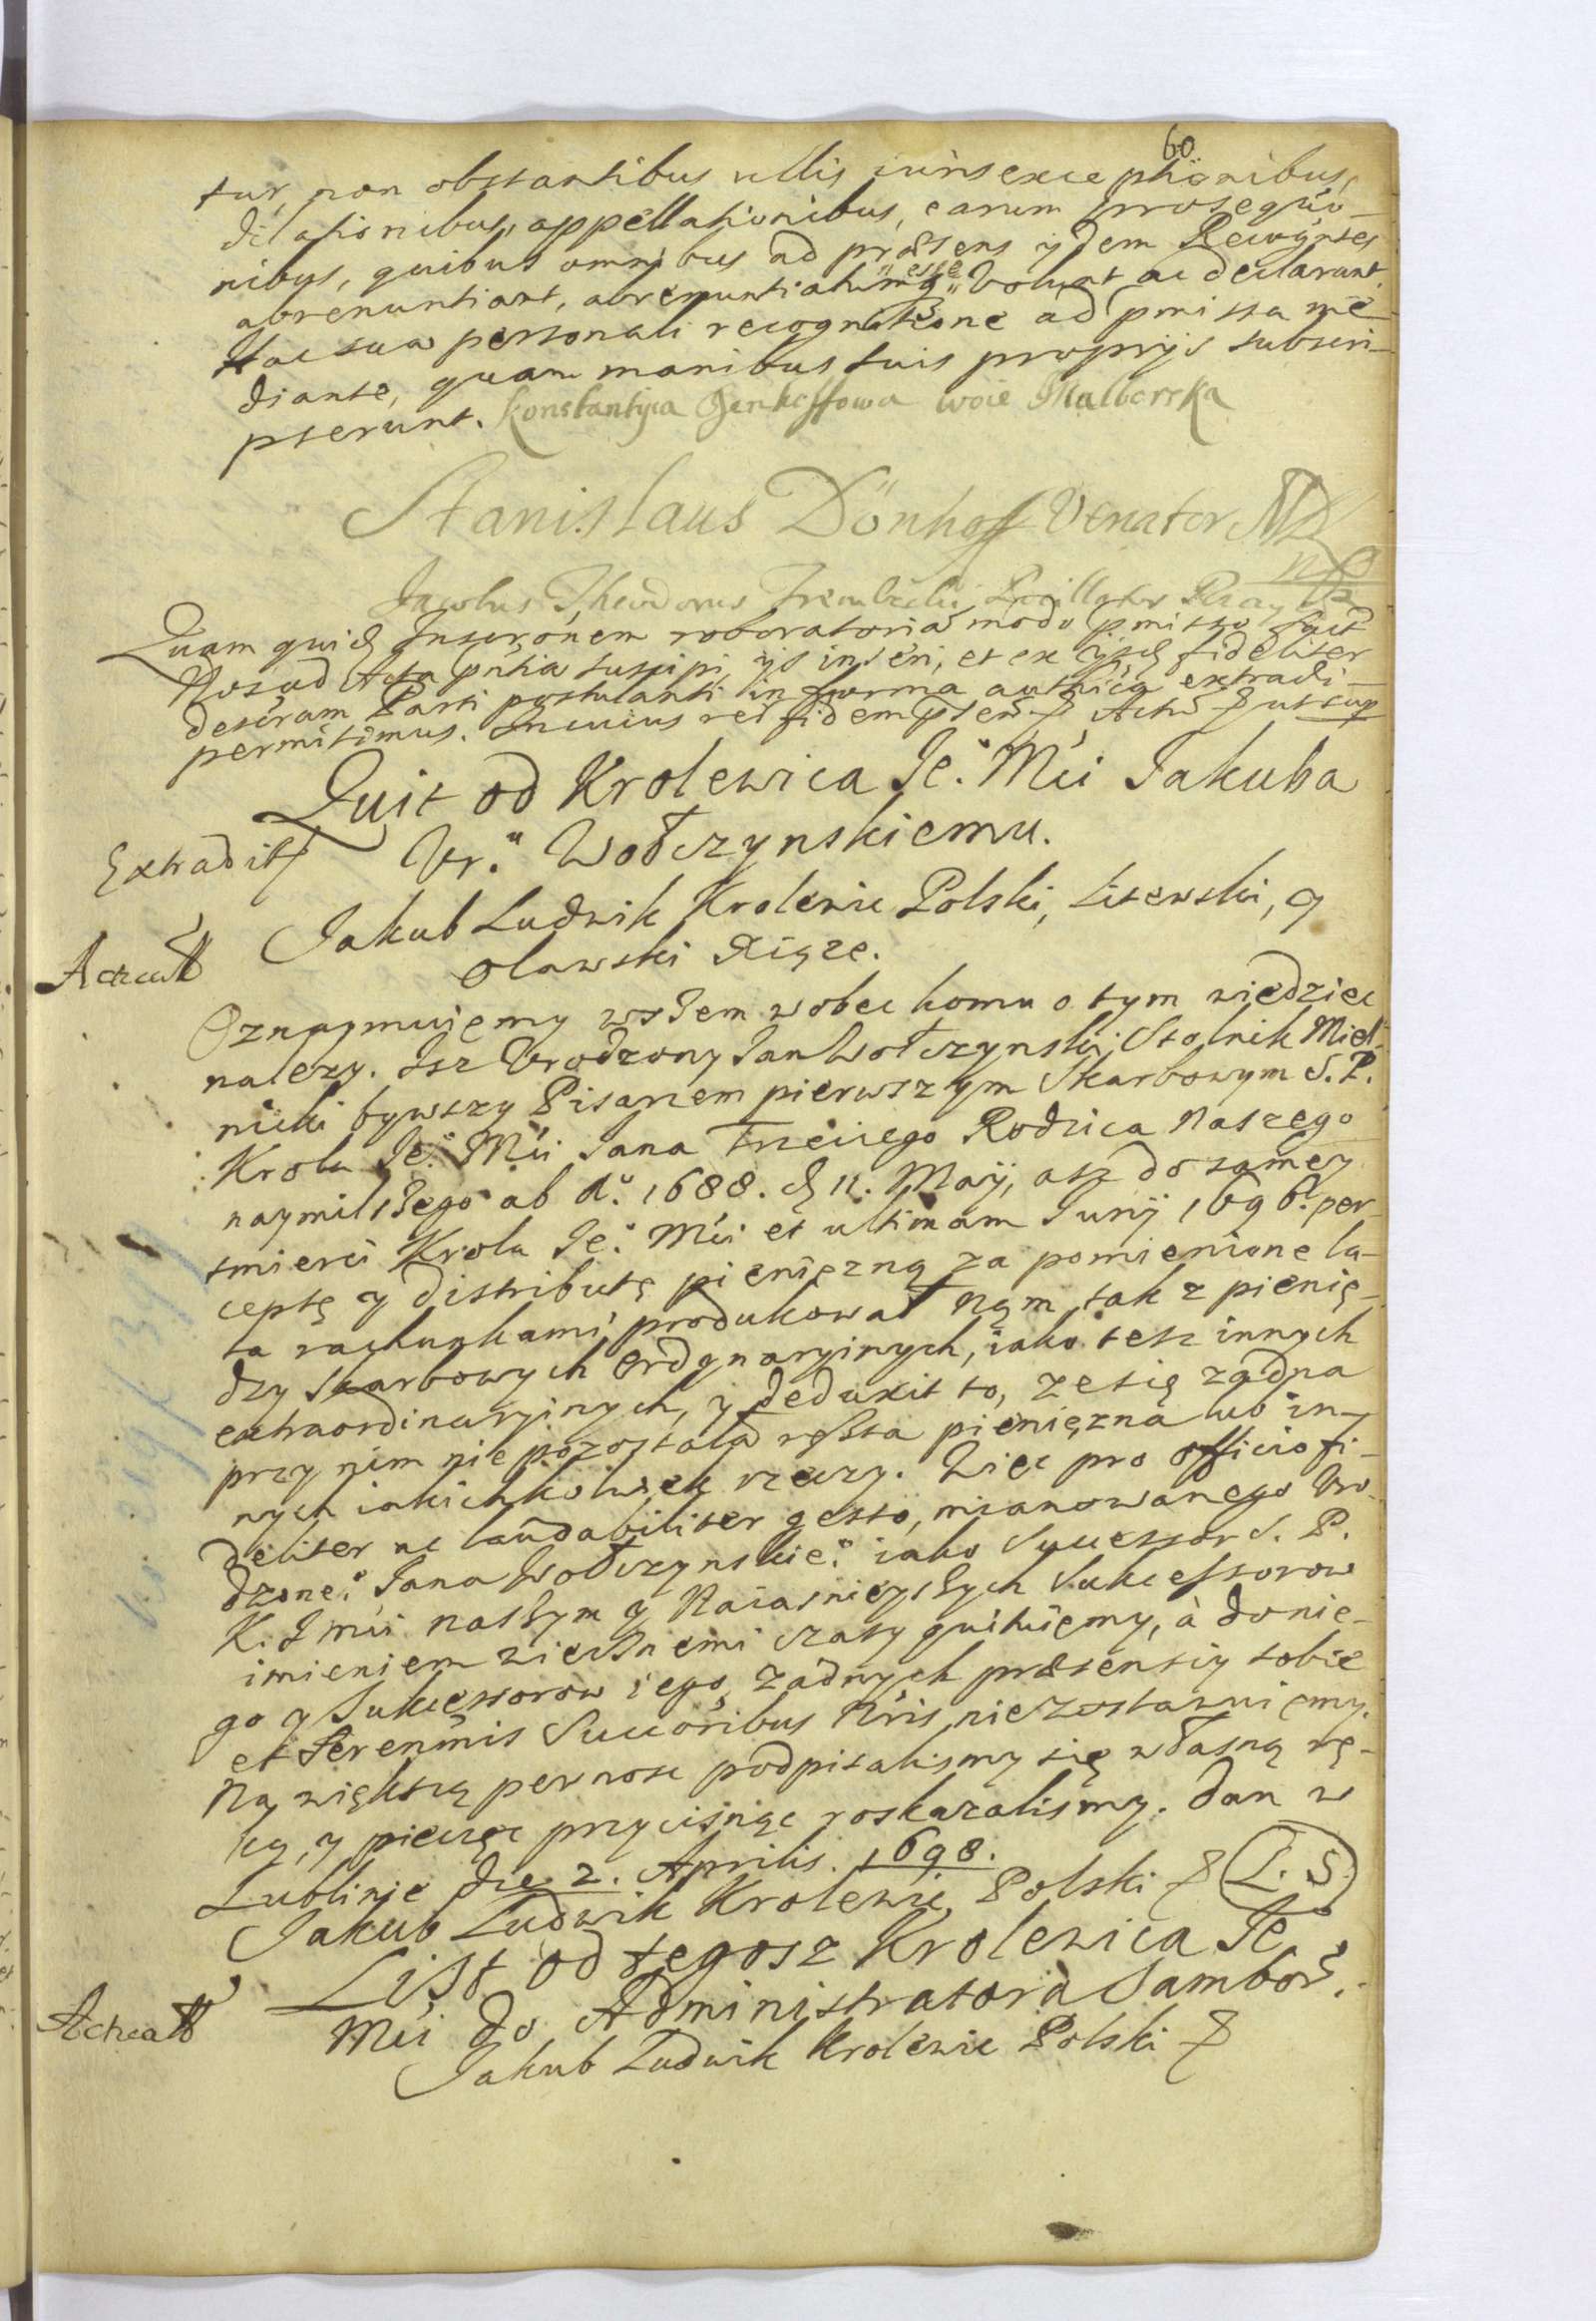 60
tur, non obstantibus ullis iuris exceptionibus,
dilationibus, appellationibus, earum prosequio-
nibus, quibus omnibus ad præsens ijdem Recogntes
abrenuntiant, abrenuntiatumq esse volunt ac declarant.
Hac sua personali recognitione ad pmissa me-
diante, quam manibus suis proprijs subscri-
pserunt. Konstantyia Denhoffowa woie Malborrka
Stanislaus Dönhoff Venator MDL
Jacobus Theodorus Trembicki Pocillator
Quam quid Inscrōnem roboratoria modo pmisso
Nos ad Acta pntia suscipi, ijs inseri, et ex ijsd fideliter
descram Parti postulanti in forma authēca extradi
permisimus. In cuius rei fidem Actū ut sup
Quit od Krolewica Je.º Mći Jakuba
Extradit Ur.º Wołczynskiemu.
Jakub Ludwik Krolewic Polski, Litewski, y
Olawski Xiąze.
Oznaymuięmy wszem wobec komu o tym wiedziec
nalezy. Isz Urodzony Jan Wołczynski Stolnik Miel-
nicki bywszy Pisarzem pierwszym Skarbowym S. P.
Krola Je.º Mći Jana Trzeciego Rodzica Naszego
naymilszego ab Aº. 1688. d 11. Maij, asz do samey
smierci Krola Je.º Mći et ultimam Junij 1696. per-
ceptę y distributę pienięzną za pomienione la-
ta rachunkami produkował nąm, tak z pienię-
dzy Skarbowych Ordynaryinych, iako tesz innych
extraordinaryinych, y deduxit to, ze się zadna
przy nim nie pozostała reszta pieniężna lub in-
nych iakichkolwiek rzeczy. Więc pro officio fi-
deliter ac laudabiliter gesto, mianowanego Uro-
dzone.º Jana Wołczynskie.º iako Successor S. P.
K. J Mći naszym y Naiasnieyszych Sukcessorow
imieniem wiecznemi czasy quituięmy, à do nie-
go y Sukcessorow iego, zadnych prætensiy sobie
et Serenmis Succoribus Nris nie zostawuięmy.
Na większą pewnosc podpisalismy się własną rę-
ką, y pieczęc przycisnąc roskazalismy. Dan w
Lublinie die 2. Aprilis. 1698.
Jakub Ludwik Krolewic Polski L. S.
List od tegosz Krolewica Je.º
Mći do Administratora Sambor.
Jakub Ludwik Krolewic Polski